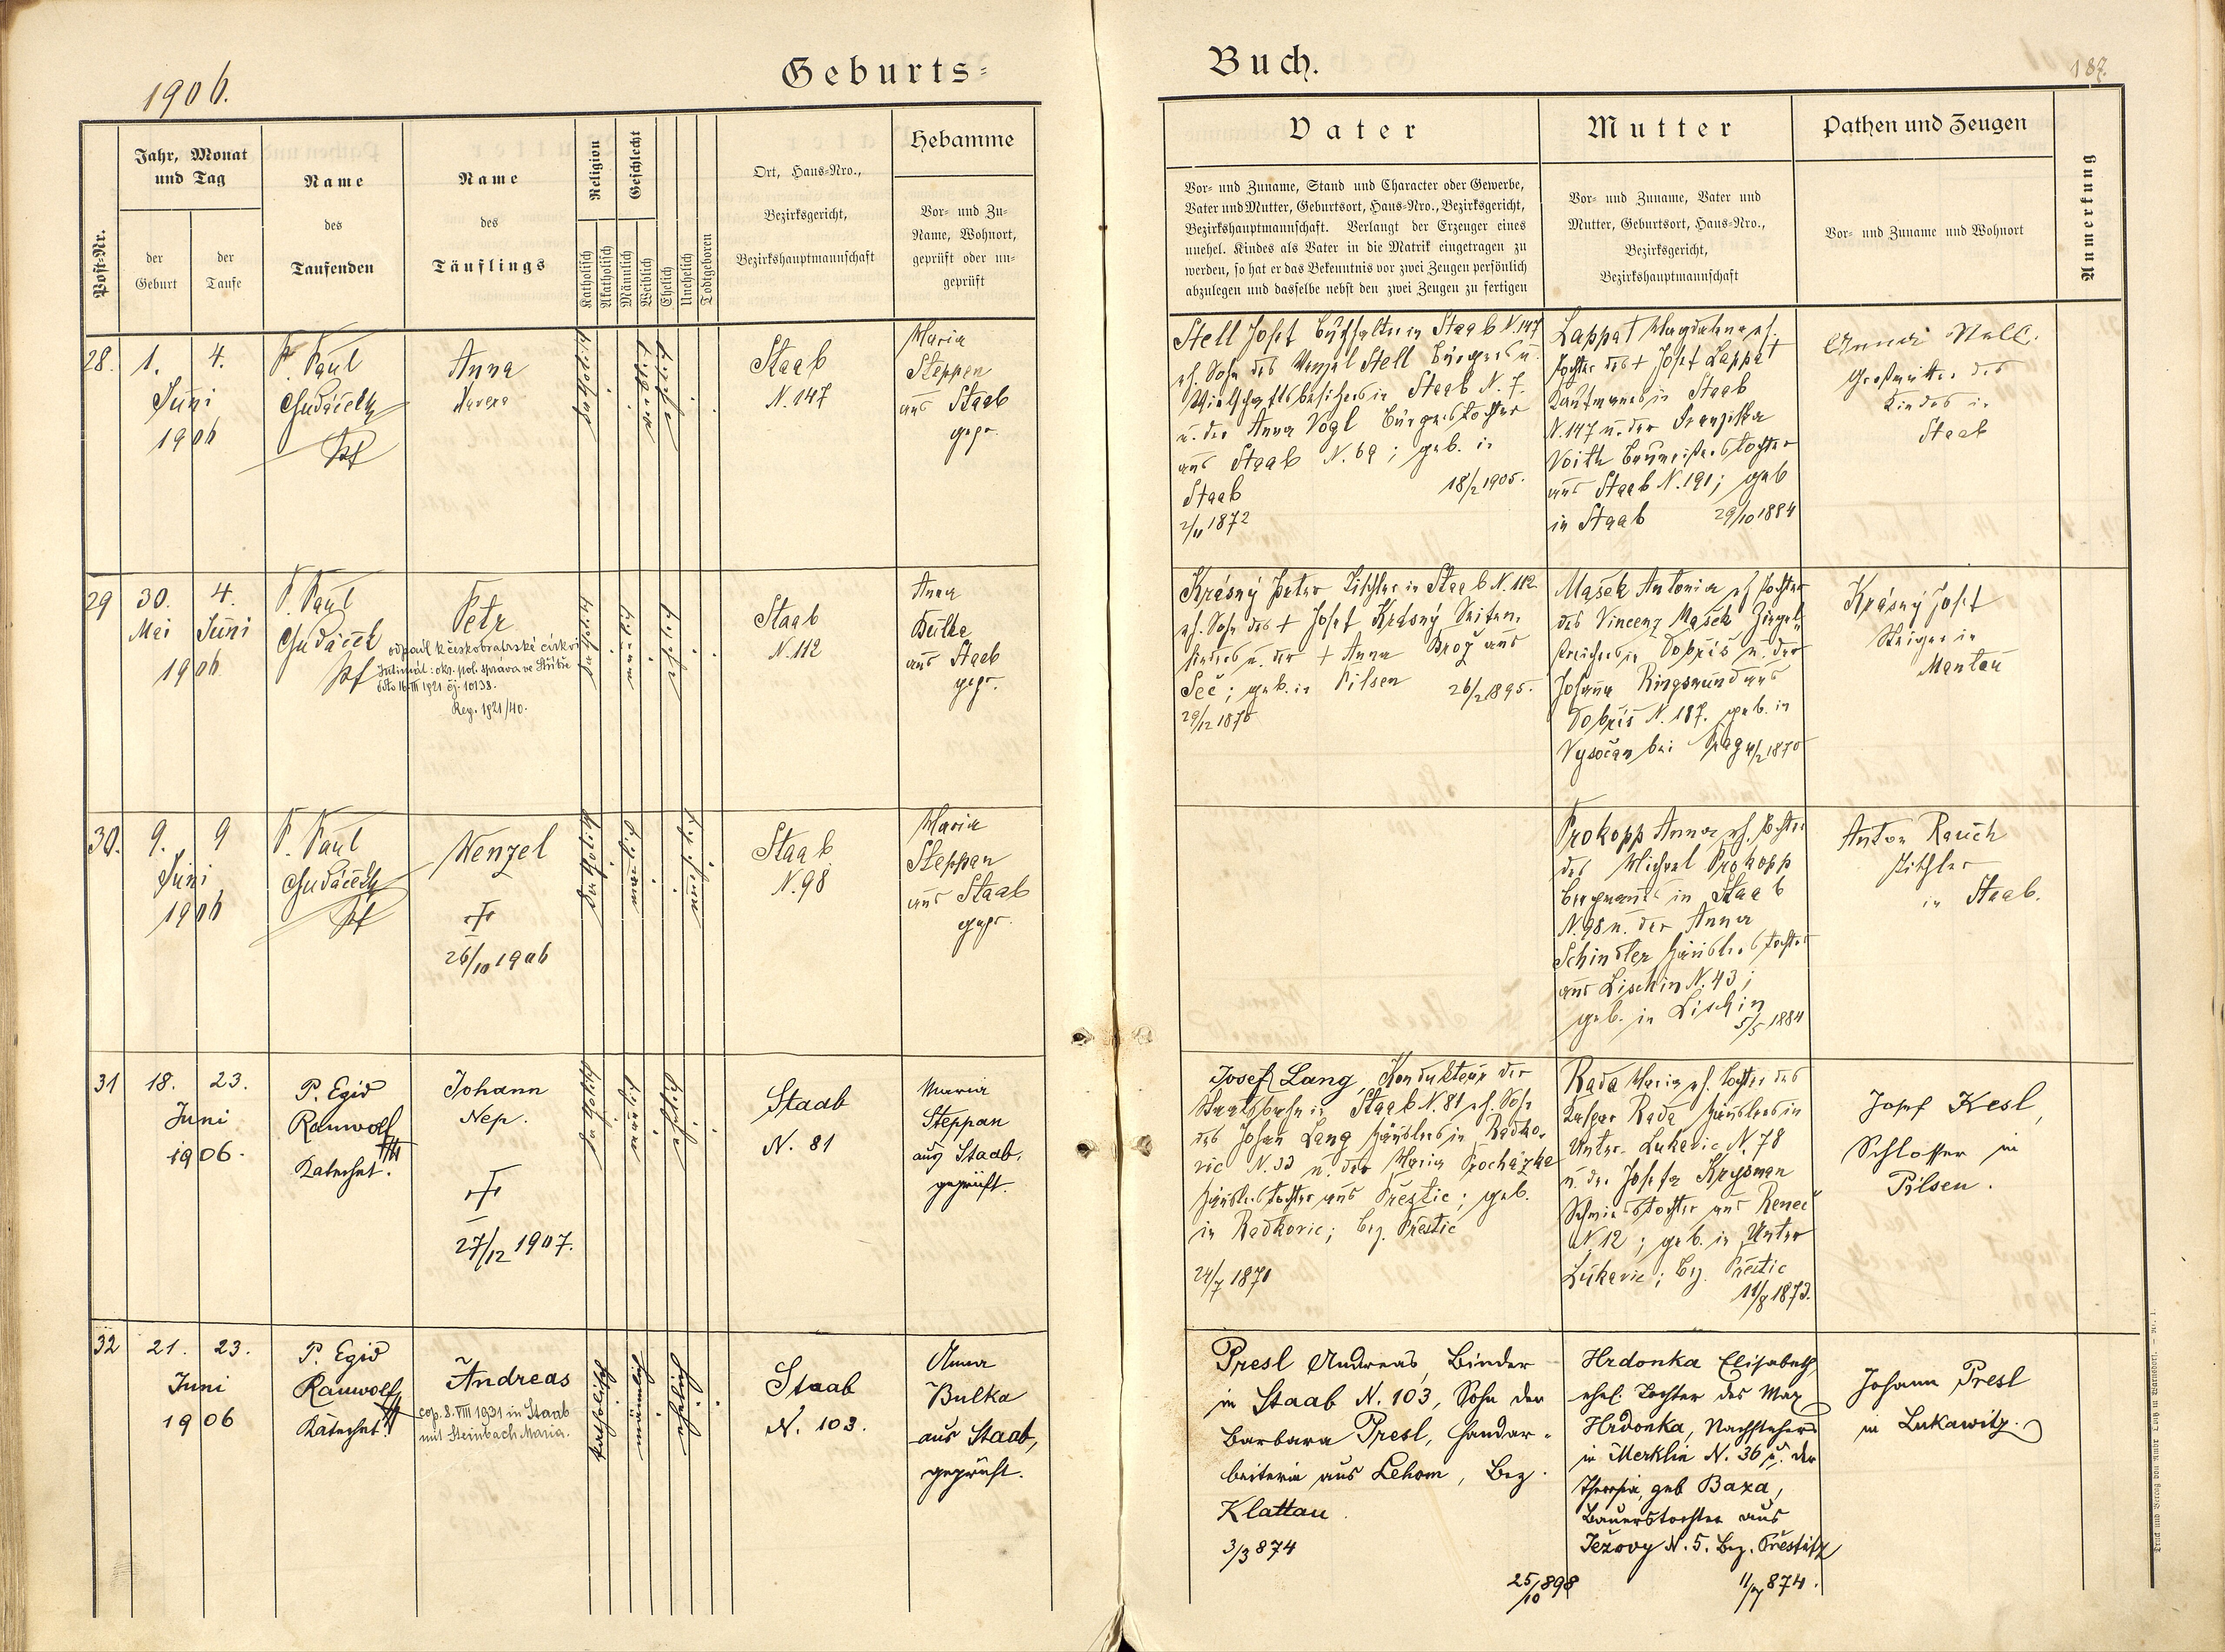 1906.
Geburts-
Buch.
187.
Post-Nr.
Jahr, Monat
und Tag
der
Geburt
der
Taufe
Name
des
Taufenden
Name
des
Täuflings
Religion
Katholisch
Akatholisch
Geschlecht
Männlich
Weiblich
Ehelich
Unehelich
Todtgeboren
Ort, Haus-Nro.,
Bezirksgericht,
Bezirkshauptmannschaft
Hebamme
Vor- und Zu-
Name, Wohnort,
geprüft oder un-
geprüft
Vater
Vor- und Zuname, Stand und Character oder Gewerbe,
Vater und Mutter, Geburtsort, Haus-Nro., Bezirksgericht,
Bezirkshauptmannschaft. Verlangt der Erzeuger eines
unehel. Kindes als Vater in die Matrik eingetragen zu
werden, so hat er das Bekenntnis vor zwei Zeugen persönlich
abzulegen und dasselbe nebst den zwei Zeugen zu fertigen
Mutter
Vor- und Zuname, Vater und
Mutter, Geburtsort, Haus-Nro.,
Bezirksgericht,
Bezirkshauptmannschaft
Pathen und Zeugen
Vor- und Zuname und Wohnort
Anmerkung
28.
1. 4.
Juni
1906
P. Paul
Hudáček
Pf
Anna
katholisch
weiblich
ehelich
Staab
N. 147
Maria
Steppan
aus Staab
gepr.
Stell Josef Buchhalter in Staab N. 147
eh. Sohn des Wenzel Stell Bürgers u.
Wirtschaftsbesitzers in Staab N. 7.
u. der Anna Vogl Bürgerstochter
aus Staab N. 69; geb. in
Staab 18/2 1905.
2/11 1872
Lappat Magdalena eh.
Tochter des + Josef Lappat
Kaufmannes in Staab
N. 147 u. der Franziska
Voith Baumeisterstochter
aus Staab N. 191; geb
in Staab 29/10 1884
Anna Stell.
Großmutter des
Kindes in
Staab
29
30. 4.
Mai Juni
1906
P. Paul
Hudáček
Pf
Petr
odpadl k českobratrské církvi
1821 čj. 10138.
Reg. 1921/40.
katholisch
männlich
ehelich
Staab
N. 112
Anna
Bulka
aus Staab
gepr.
Krásný Peter Tischler in Staab N. 112
eh. Sohn des + Josef Krásný
u. der + Anna Brož aus
Seč; geb. in Pilsen 26/2 1895.
29/12 1870
Mašek Antonia eh. Tochter
des Vincenz Mašek Ziegel-
streichers in Dobříš u. der
Johanna aus
Dobříš N. 187. geb. in
Vysočan bei Prag 4/2 1870
Krásný Josef
Steiger in
Mantau
30.
9. 9
Juni
1906
P. Paul
Hudáček
Pf
Wenzel
†
26/10 1906
katholisch
männlich
unehelich
Staab
N. 98
Maria
Steppan
aus Staab
gepr.
Prokopp Anna eh. Tochter
des Michael Prokopp
Bergmanns in Staab
N. 98 u. der Anna
Schindler Häuslerstochter
aus Lischin N. 43;
geb. in Lischin
5/5 1884
Anton Rauch
Tischler
in Staab.
31
18. 23.
Juni
1906.
P. Egid
Rauwolf
Katechet.
Johann
Nep.
†
27/12 1907.
katholisch
männlich
ehelich
Staab
N. 81
Maria
Steppan
aus Staab,
geprüft.
Josef Lang, Kondukteur der
Staatsbahn in Staab N. 81 eh. Sohn
des Johan Lang Häuslers in Radko-
vic N. 33 u. der Maria Procházka
Häuslerstochter aus Přeštic; geb.
in Radkovic; Bez. Přeštic
24/7 1871
Rada Maria eh. Tochter des
Kaspar Rada Häuslers in
Unter-Lukavic N. 78
u. der Josefa Krysman
Schmiedstochter aus Reneč
N. 12; geb. in Unter
Lukavic; Bez. Přeštic
11/8 1873.
Josef Kesl,
Schlosser in
Pilsen.
32
21. 23.
Juni
1906
P. Egid
Rauwolf,
Katechet.
Andreas
cop. 8. VIII 1931 in Staab
mit Steinbach Maria.
katholisch
männlich
ehelich
Staab
N. 103.
Anna
Bulka
aus Staab,
geprüft.
Presl Andreas, Binder
in Staab N. 103, Sohn der
Barbara Presl, Handar-
beiterin aus Lehom, Bez.
Klattau.
3/3 874
25/10 898
Hrdonka Elisabeth,
ehel. Tochter des Max
Hrdonka, Nachstehers
in Merklin N. 36 u. der
Theresia, geb Baxa,
Bauerstochter aus
Ježovy N. 5. Bez. Přeštitz
11/7 874.
Johann Presl
in Lukawitz.